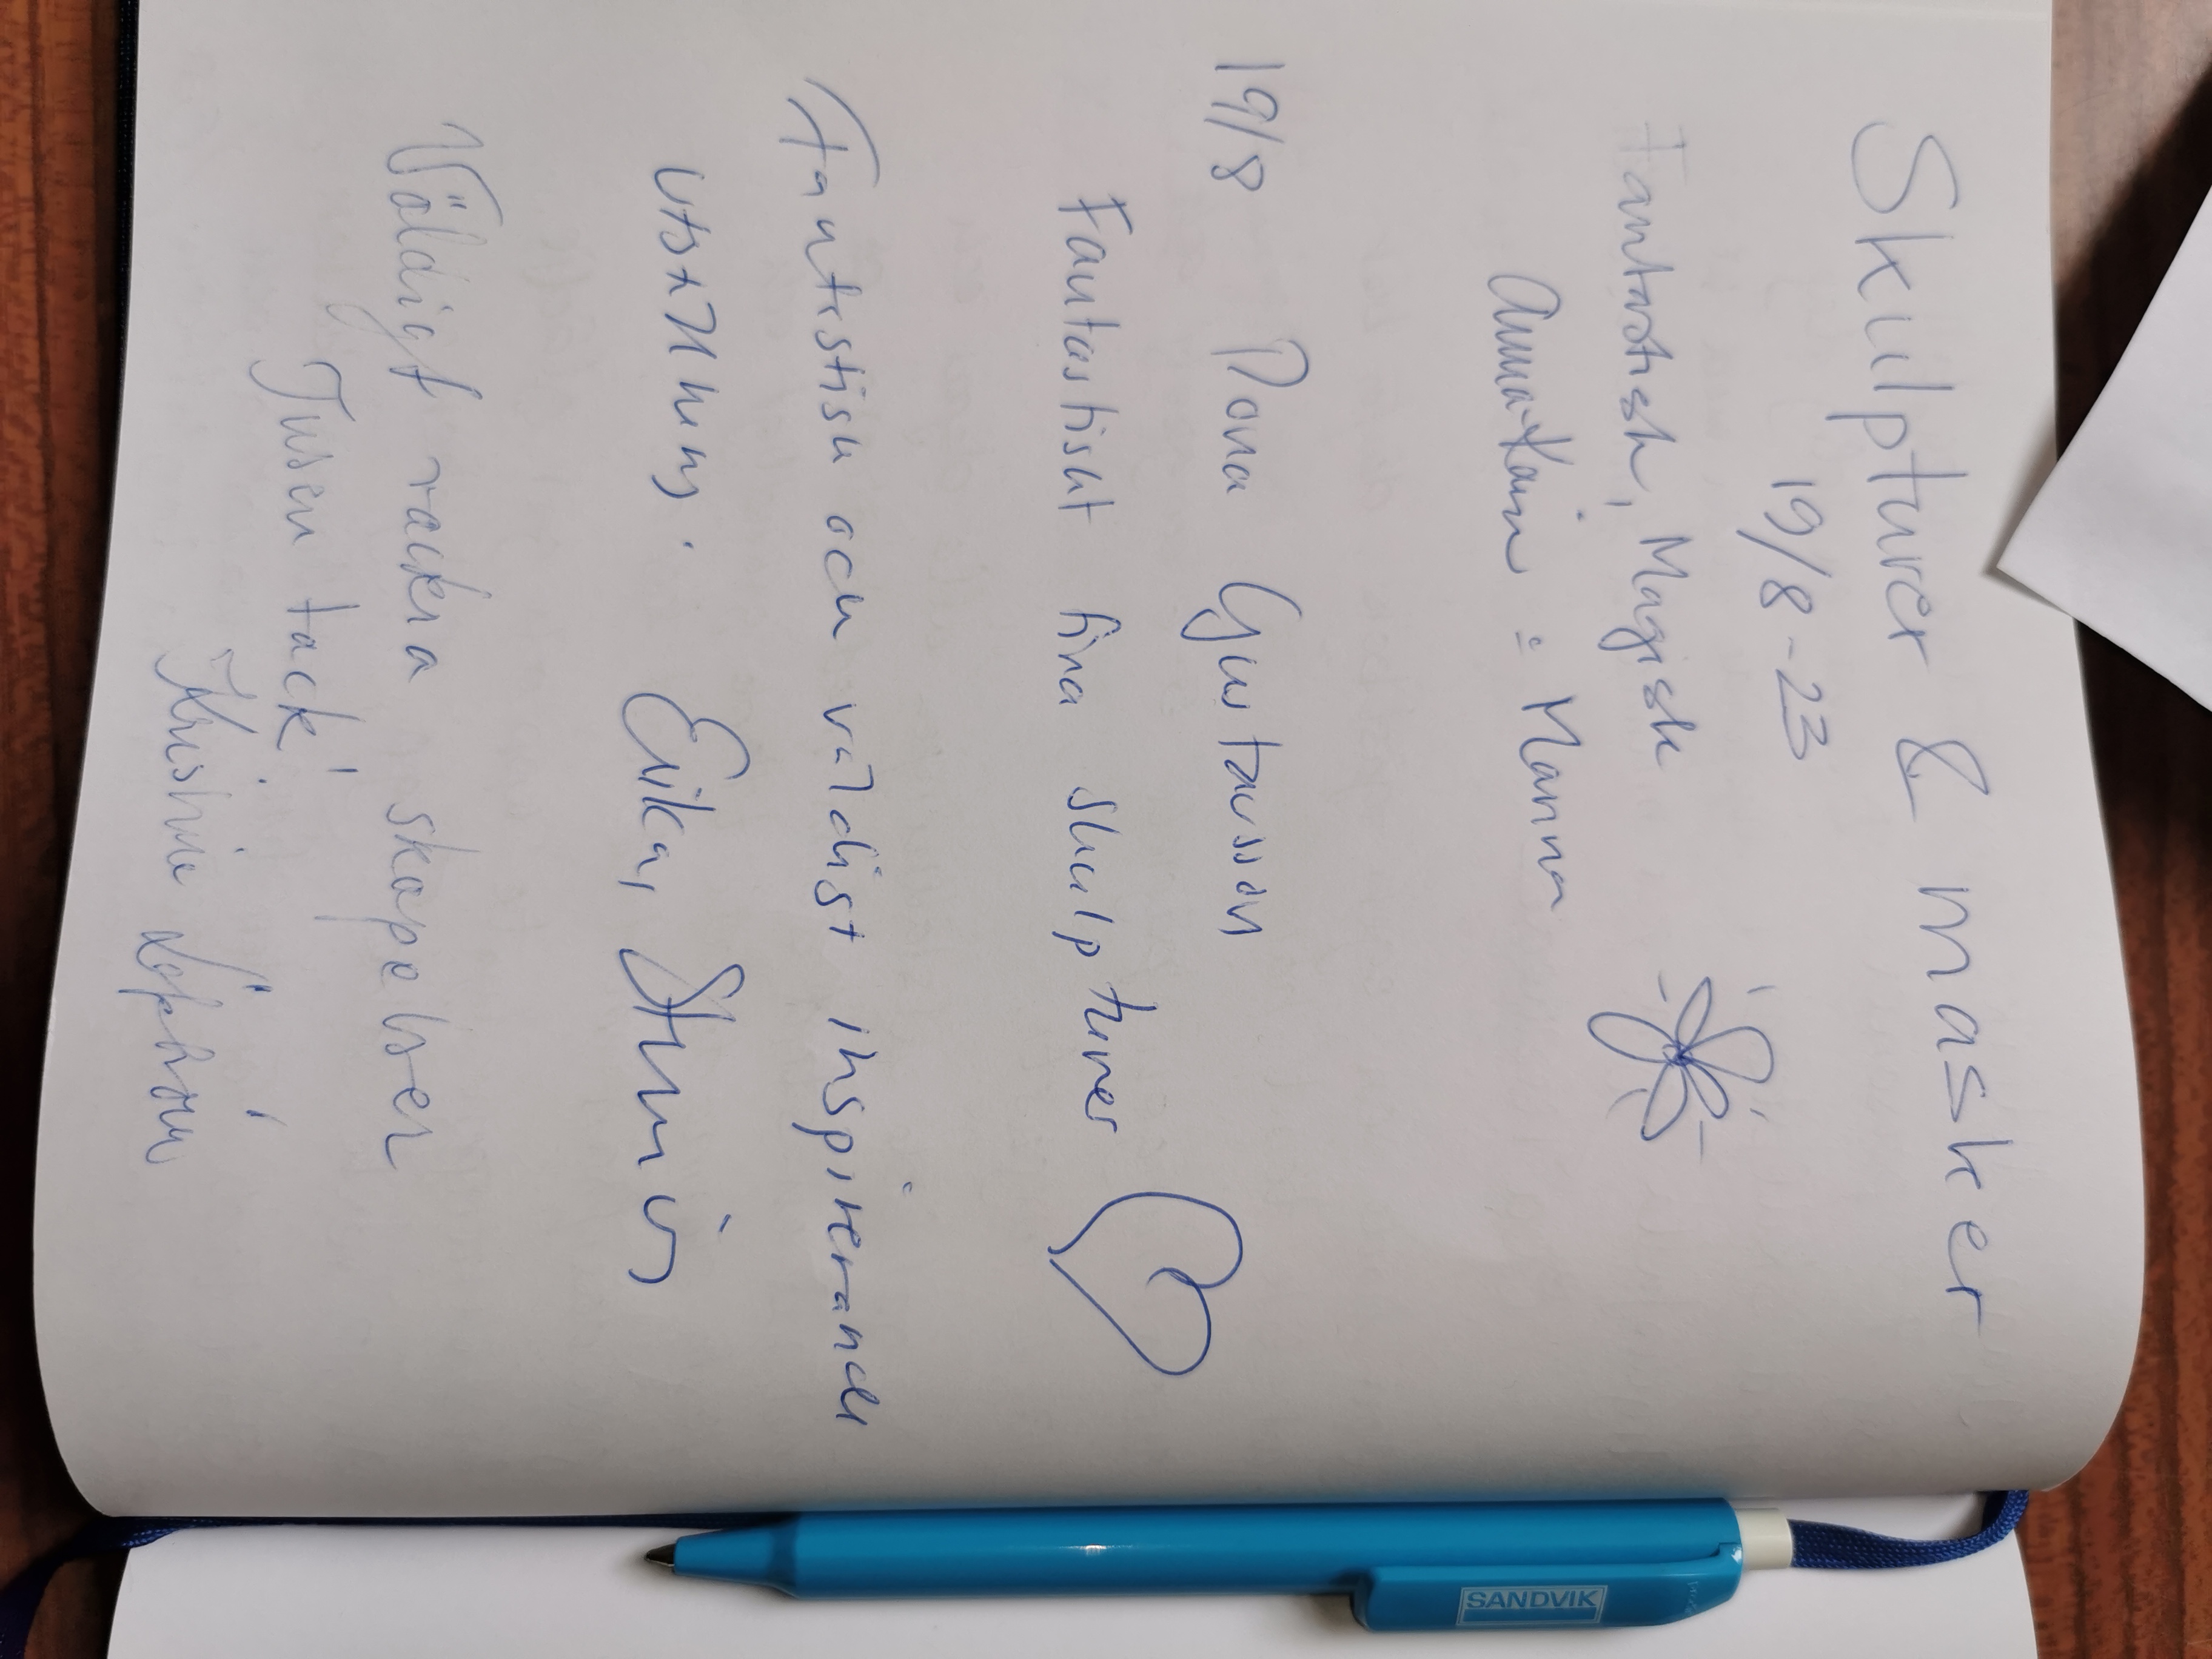 Skulpturer & masker
19/8-23
Fantastisk, Magisk
= Manna
19/8 Mona Gustavsson
Fantastiskt fina skulpturer
Fantastisk och väldigt inspirerande
utställning. Erika,
Väldigt vackra skapelser
Tusen tack!
SANDVIK